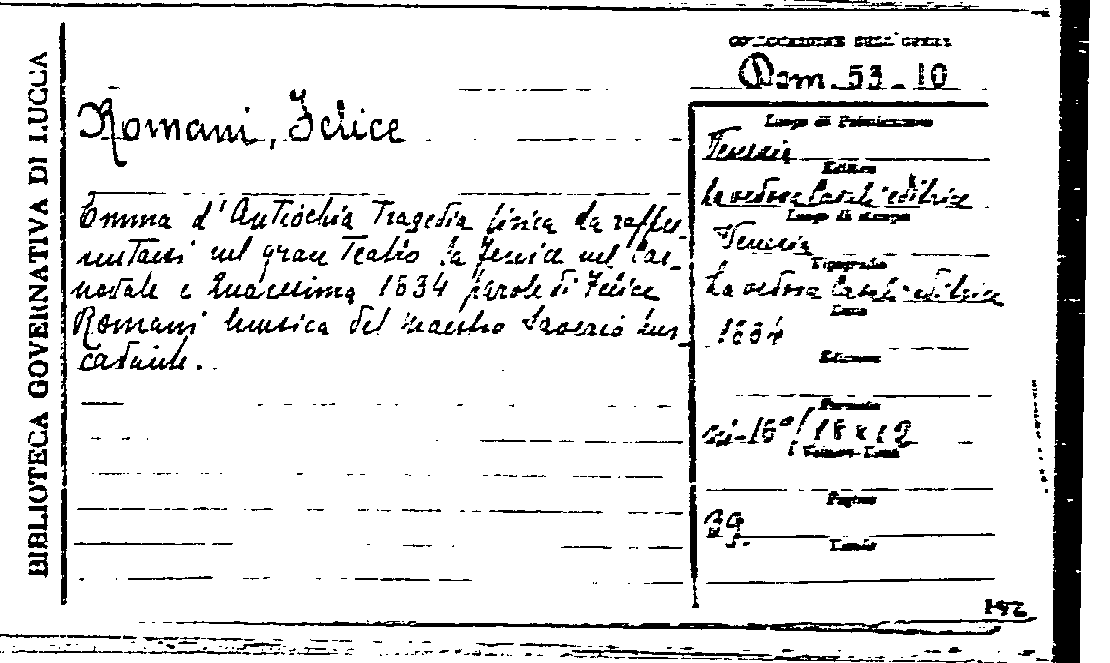 BIBLIOTECA GOVERNATIVA DI LUCCA
COLLOCAZIONE DELL'OPERA
Dom. 53-10
Romani, Felice
Emma d'Antiochia Tragedia lirica da rappre-
sentarsi nel gran Teatro la Fenice nel Car-
novale e Quaresima 1834 parole di Felice
Romani musica del maestro Saverio Mer-
cadante.
Luogo di Pubblicazione
Venezia
Editore
La vedova Casali editrice
Luogo di stampa
Venezia
Tipografia
La vedova Casali editrice
Data
1834
Edizione
Formato
in-16°/18x12
Volume-Tomo
Pagine
39.
Tavole
142